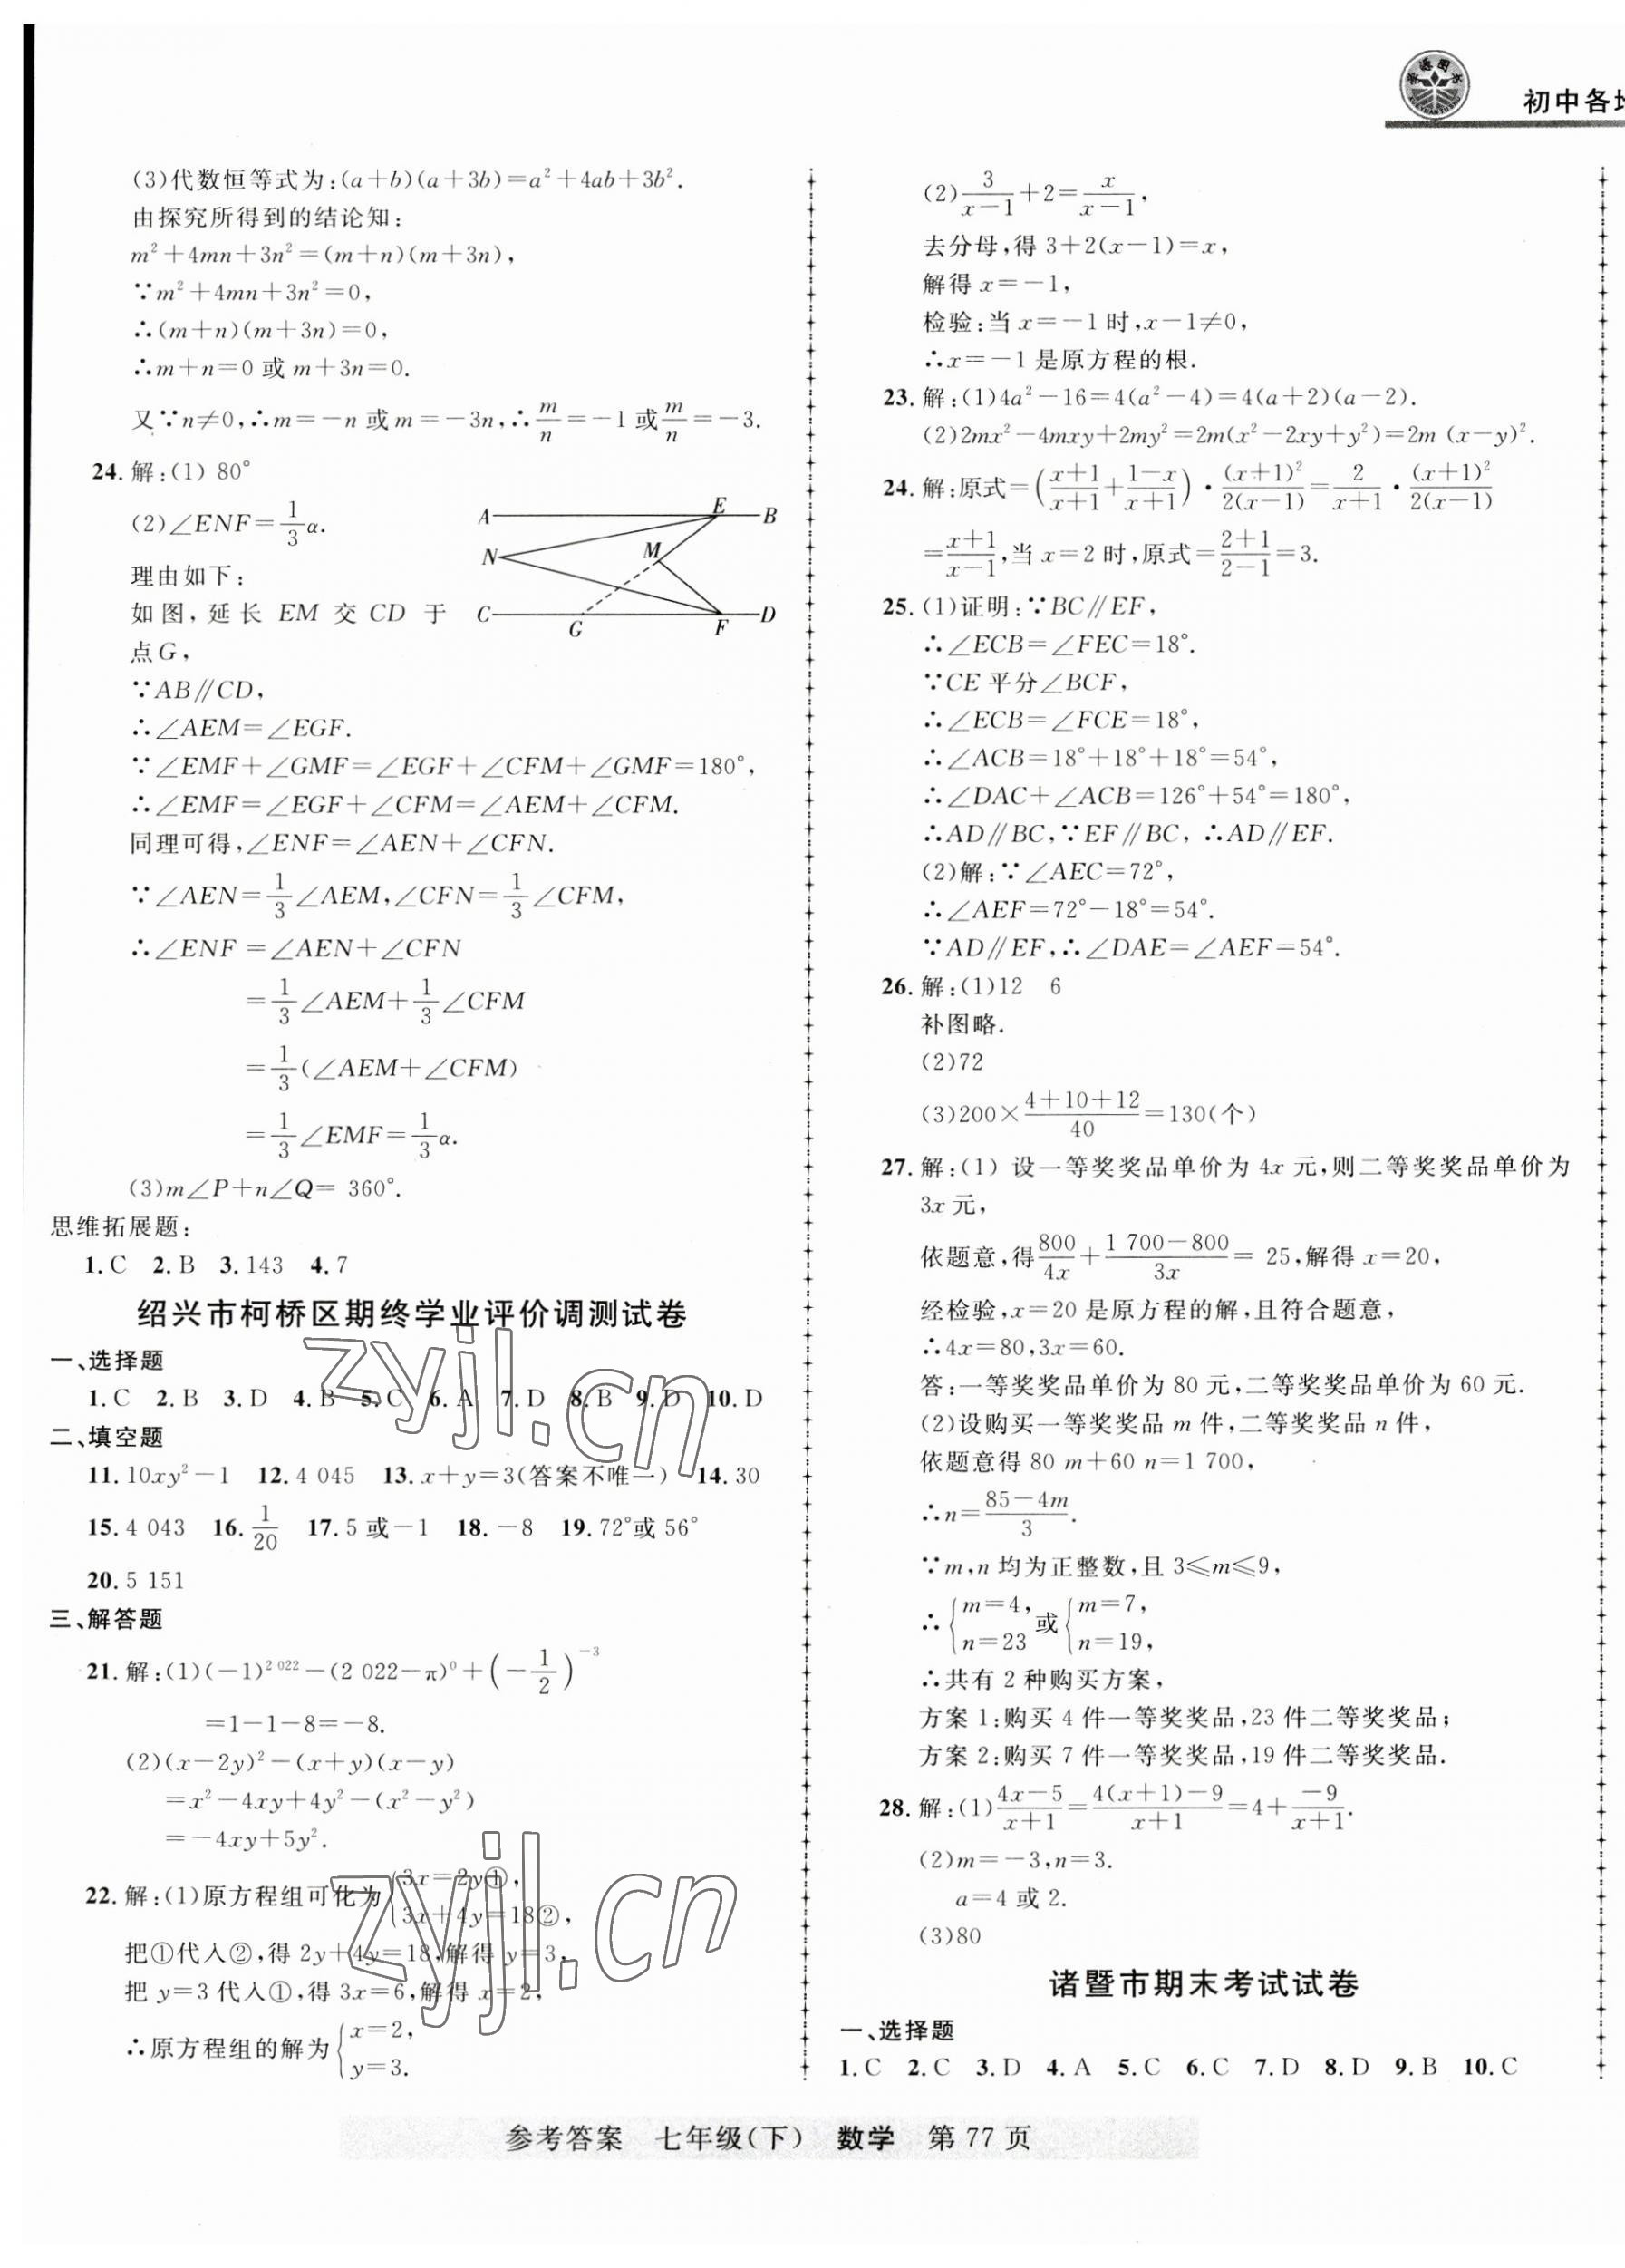 初中各地
(3)代数恒等式为:(a+b)(a+3b)=a²+4ab+3b².
由探究所得到的结论知:
m²+4mn+3n²=(m+n)(m+3n),
∵m²+4mn+3n²=0,
∴(m+n)(m+3n)=0,
∴m+n=0 或 m+3n=0.
又∵n≠0,∴m=-n 或 m=-3n,∴m/n=-1 或 m/n=-3.
24.解:(1) 80°
(2)∠ENF=1/3 α.
理由如下:
如图,延长 EM 交 CD 于
点G,
A E B
N M
C G F D
∵AB∥CD,
∴∠AEM=∠EGF.
∵∠EMF+∠GMF=∠EGF+∠CFM+∠GMF=180°,
∴∠EMF=∠EGF+∠CFM=∠AEM+∠CFM.
同理可得,∠ENF=∠AEN+∠CFN.
∵∠AEN=1/3∠AEM,∠CFN=1/3∠CFM,
∴∠ENF=∠AEN+∠CFN
=1/3∠AEM+1/3∠CFM
=1/3(∠AEM+∠CFM)
=1/3∠EMF=1/3 α.
(3)m∠P+n∠Q= 360°.
思维拓展题:
1.C 2.B 3.143 4.7
绍兴市柯桥区期终学业评价调测试卷
一、选择题
1.C 2.B 3.D 4.B 5.C 6.A 7.D 8.B 9.D 10.D
二、填空题
11.10xy²-1 12.4 045 13.x+y=3(答案不唯一) 14.30
15.4 043 16.1/20 17.5 或-1 18.-8 19.72°或 56°
20.5 151
三、解答题
21.解:(1)(-1)^2 022-(2 022-π)⁰+(-1/2)^-3
=1-1-8=-8.
(2)(x-2y)²-(x+y)(x-y)
=x²-4xy+4y²-(x²-y²)
=-4xy+5y².
22.解:(1)原方程组可化为{3x=2y①,
3x+4y=18②,
把①代入②,得 2y+4y=18,解得 y=3,
把 y=3 代入①,得 3x=6,解得 x=2,
∴原方程组的解为{x=2,
y=3.
(2)3/(x-1)+2=x/(x-1),
去分母,得 3+2(x-1)=x,
解得 x=-1,
检验:当 x=-1 时,x-1≠0,
∴x=-1 是原方程的根.
23.解:(1)4a²-16=4(a²-4)=4(a+2)(a-2).
(2)2mx²-4mxy+2my²=2m(x²-2xy+y²)=2m (x-y)².
24.解:原式=((x+1)/(x+1)+(1-x)/(x+1))·(x+1)²/2(x-1)=2/(x+1)·(x+1)²/2(x-1)
=(x+1)/(x-1),当 x=2 时,原式=(2+1)/(2-1)=3.
25.(1)证明:∵BC∥EF,
∴∠ECB=∠FEC=18°.
∵CE 平分∠BCF,
∴∠ECB=∠FCE=18°,
∴∠ACB=18°+18°+18°=54°,
∴∠DAC+∠ACB=126°+54°=180°,
∴AD∥BC,∵EF∥BC, ∴AD∥EF.
(2)解:∵∠AEC=72°,
∴∠AEF=72°-18°=54°.
∵AD∥EF,∴∠DAE=∠AEF=54°.
26.解:(1)12 6
补图略.
(2)72
(3)200×(4+10+12)/40=130(个)
27.解:(1) 设一等奖奖品单价为 4x 元,则二等奖奖品单价为
3x 元,
依题意,得800/4x+(1 700-800)/3x= 25,解得 x=20,
经检验,x=20 是原方程的解,且符合题意,
∴4x=80,3x=60.
答:一等奖奖品单价为 80 元,二等奖奖品单价为 60 元.
(2)设购买一等奖奖品 m 件,二等奖奖品 n 件,
依题意得 80 m+60 n=1 700,
∴n=(85-4m)/3.
∵m,n 均为正整数,且 3≤m≤9,
∴{m=4, 或{m=7,
n=23 n=19,
∴共有 2 种购买方案,
方案 1:购买 4 件一等奖奖品,23 件二等奖奖品;
方案 2:购买 7 件一等奖奖品,19 件二等奖奖品.
28.解:(1)(4x-5)/(x+1)=(4(x+1)-9)/(x+1)=4+(-9)/(x+1).
(2)m=-3,n=3.
a=4 或 2.
(3)80
诸暨市期末考试试卷
一、选择题
1.C 2.C 3.D 4.A 5.C 6.C 7.D 8.D 9.B 10.C
参考答案 七年级(下) 数学 第 77 页
zyjl.cn
zyjl.cn